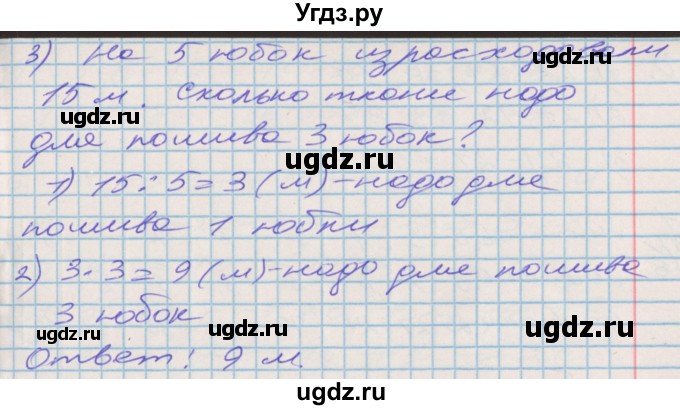 Угдз.ру
3) На 5 юбок израсходовали
15 м. Сколько ткани надо
для пошива 3 юбок?
1) 15 : 5 = 3 (м) - надо для
пошива 1 юбки
2) 3 · 3 = 9 (м) - надо для пошива
3 юбок
Ответ: 9 м.
ugdz.ru
ugdz.ru
ugdz.ru
ugdz.ru
ugdz.ru
ugdz.ru
ugdz.ru
ugdz.ru
ugdz.ru